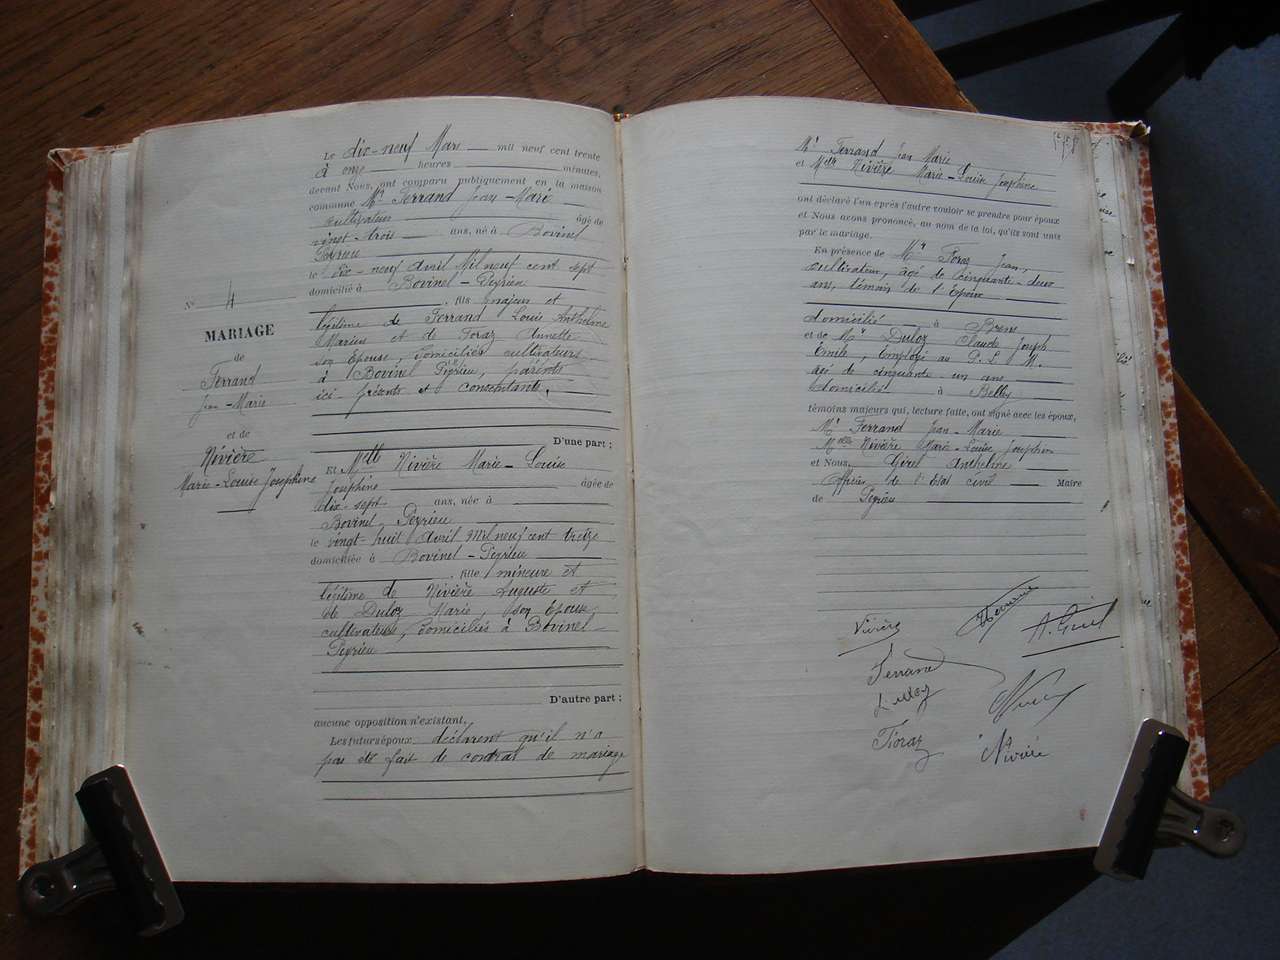 Le dix-neuf Mars mil neuf cent trente
à onze heures minutes,
devant Nous, ont comparu publiquement en la maison
commune Mr Ferrand Jean-Marie
cultivateur âgé de
vingt-trois ans, né à Bovinel
Peyrieu
le dix-neuf Avril Mil neuf cent sept
domicilié à Bovinel-Peyrieu
, fils majeur et
légitime de Ferrand Louis Anthelme
Marius et de Foraz Annette
son Epouse, domiciliés cultivateurs
à Bovinel Peyrieu, parents
ici-présents et consentants.
D'une part ;
Nº 4
MARIAGE
de
Ferrand
Jean-Marie
et de
Nivière
Marie-Louise Joséphine
Et Mdlle Nivière Marie-Louise
Joséphine âgée de
dix-sept ans, née à
Bovinel Peyrieu
le vingt huit Avril Mil neuf cent treize
domiciliée à Bovinel-Peyrieu
, fille mineure et
légitime de Nivière Auguste et
de Duloz Marie, son Epouse,
cultivateurs, domiciliés à Bovinel-
Peyrieu
D'autre part ;
aucune opposition n'existant,
Les futurs époux déclarent qu'il n'a
pas été fait de contrat de mariage
Mr Ferrand Jean Marie
et Mdlle Nivière Marie-Louise Joséphine
ont déclaré l'un après l'autre vouloir se prendre pour époux
et Nous avons prononcé, au nom de la loi, qu'ils sont unis
par le mariage.
En présence de Mr Foraz Jean,
cultivateur, âgé de cinquante-deux
ans, témoin de l'Epoux
domicilié à Brens
et de Mr Duloz Claude Joseph
Emile, Employé au P. L. M.
âgé de cinquante-un ans
domicilié à Belley
témoins majeurs qui, lecture faite, ont signé avec les époux,
Mr Ferrand Jean-Marie
Mdlle Nivière Marie-Louise Joséphine
et Nous, Girel Anthelme
Officier de l'Etat civil Maire
de Peyrieu
Nivière
A. Girel
Ferrand
Duloz
Foraz
Nivière